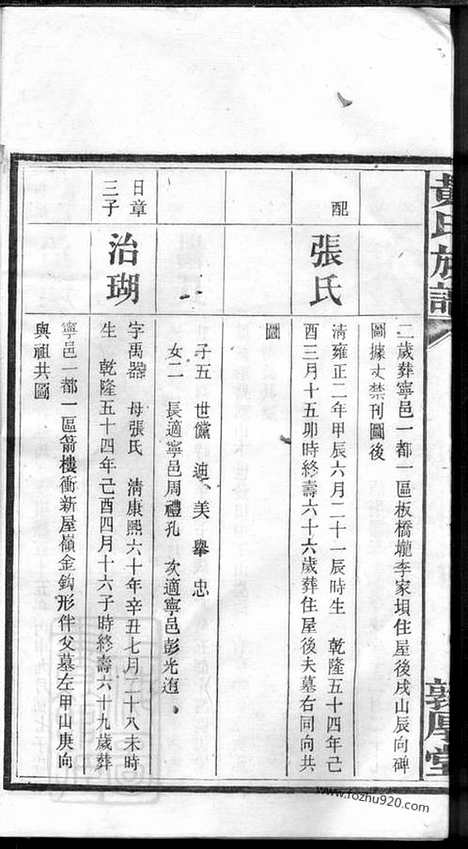 黃氏族譜
敦厚堂
二歲葬寧邑一都一區板橋壠李家垻住屋後戌山辰向碑
圖據丈禁刊圖後
配
張氏
清雍正二年甲辰六月二十一辰時生　乾隆五十四年己
酉三月十五卯時終壽六十六歲葬住屋後夫墓右同向共
圖
子五　世儻　迪　美　舉　忠
女二　長適寧邑周禮孔　次適寧邑彭光迶
日章
三子
治瑚
字禹器　母張氏　清康熙六十年辛丑七月二十八未時
生　乾隆五十四年己酉四月十六子時終壽六十九歲葬
寧邑一都一區箭樓衝新屋嶺金鈎形伴父墓左甲山庚向
與祖共圖
www.fozhu920.com